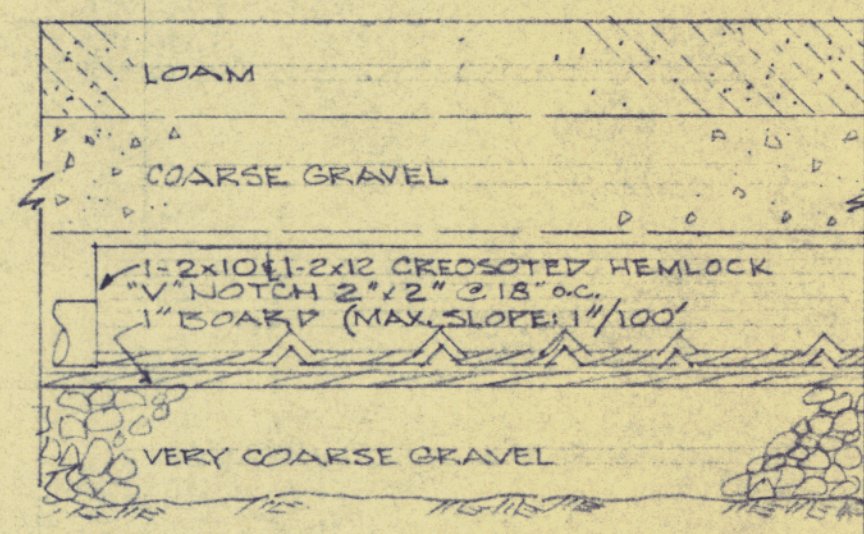 LOAM
COARSE GRAVEL
1-2x10 & 1-2x12 CREOSOTED HEMLOCK
"V" NOTCH 2"x2" @ 18" o.c.
1" BOARD (MAX. SLOPE: 1"/100'
VERY COARSE GRAVEL